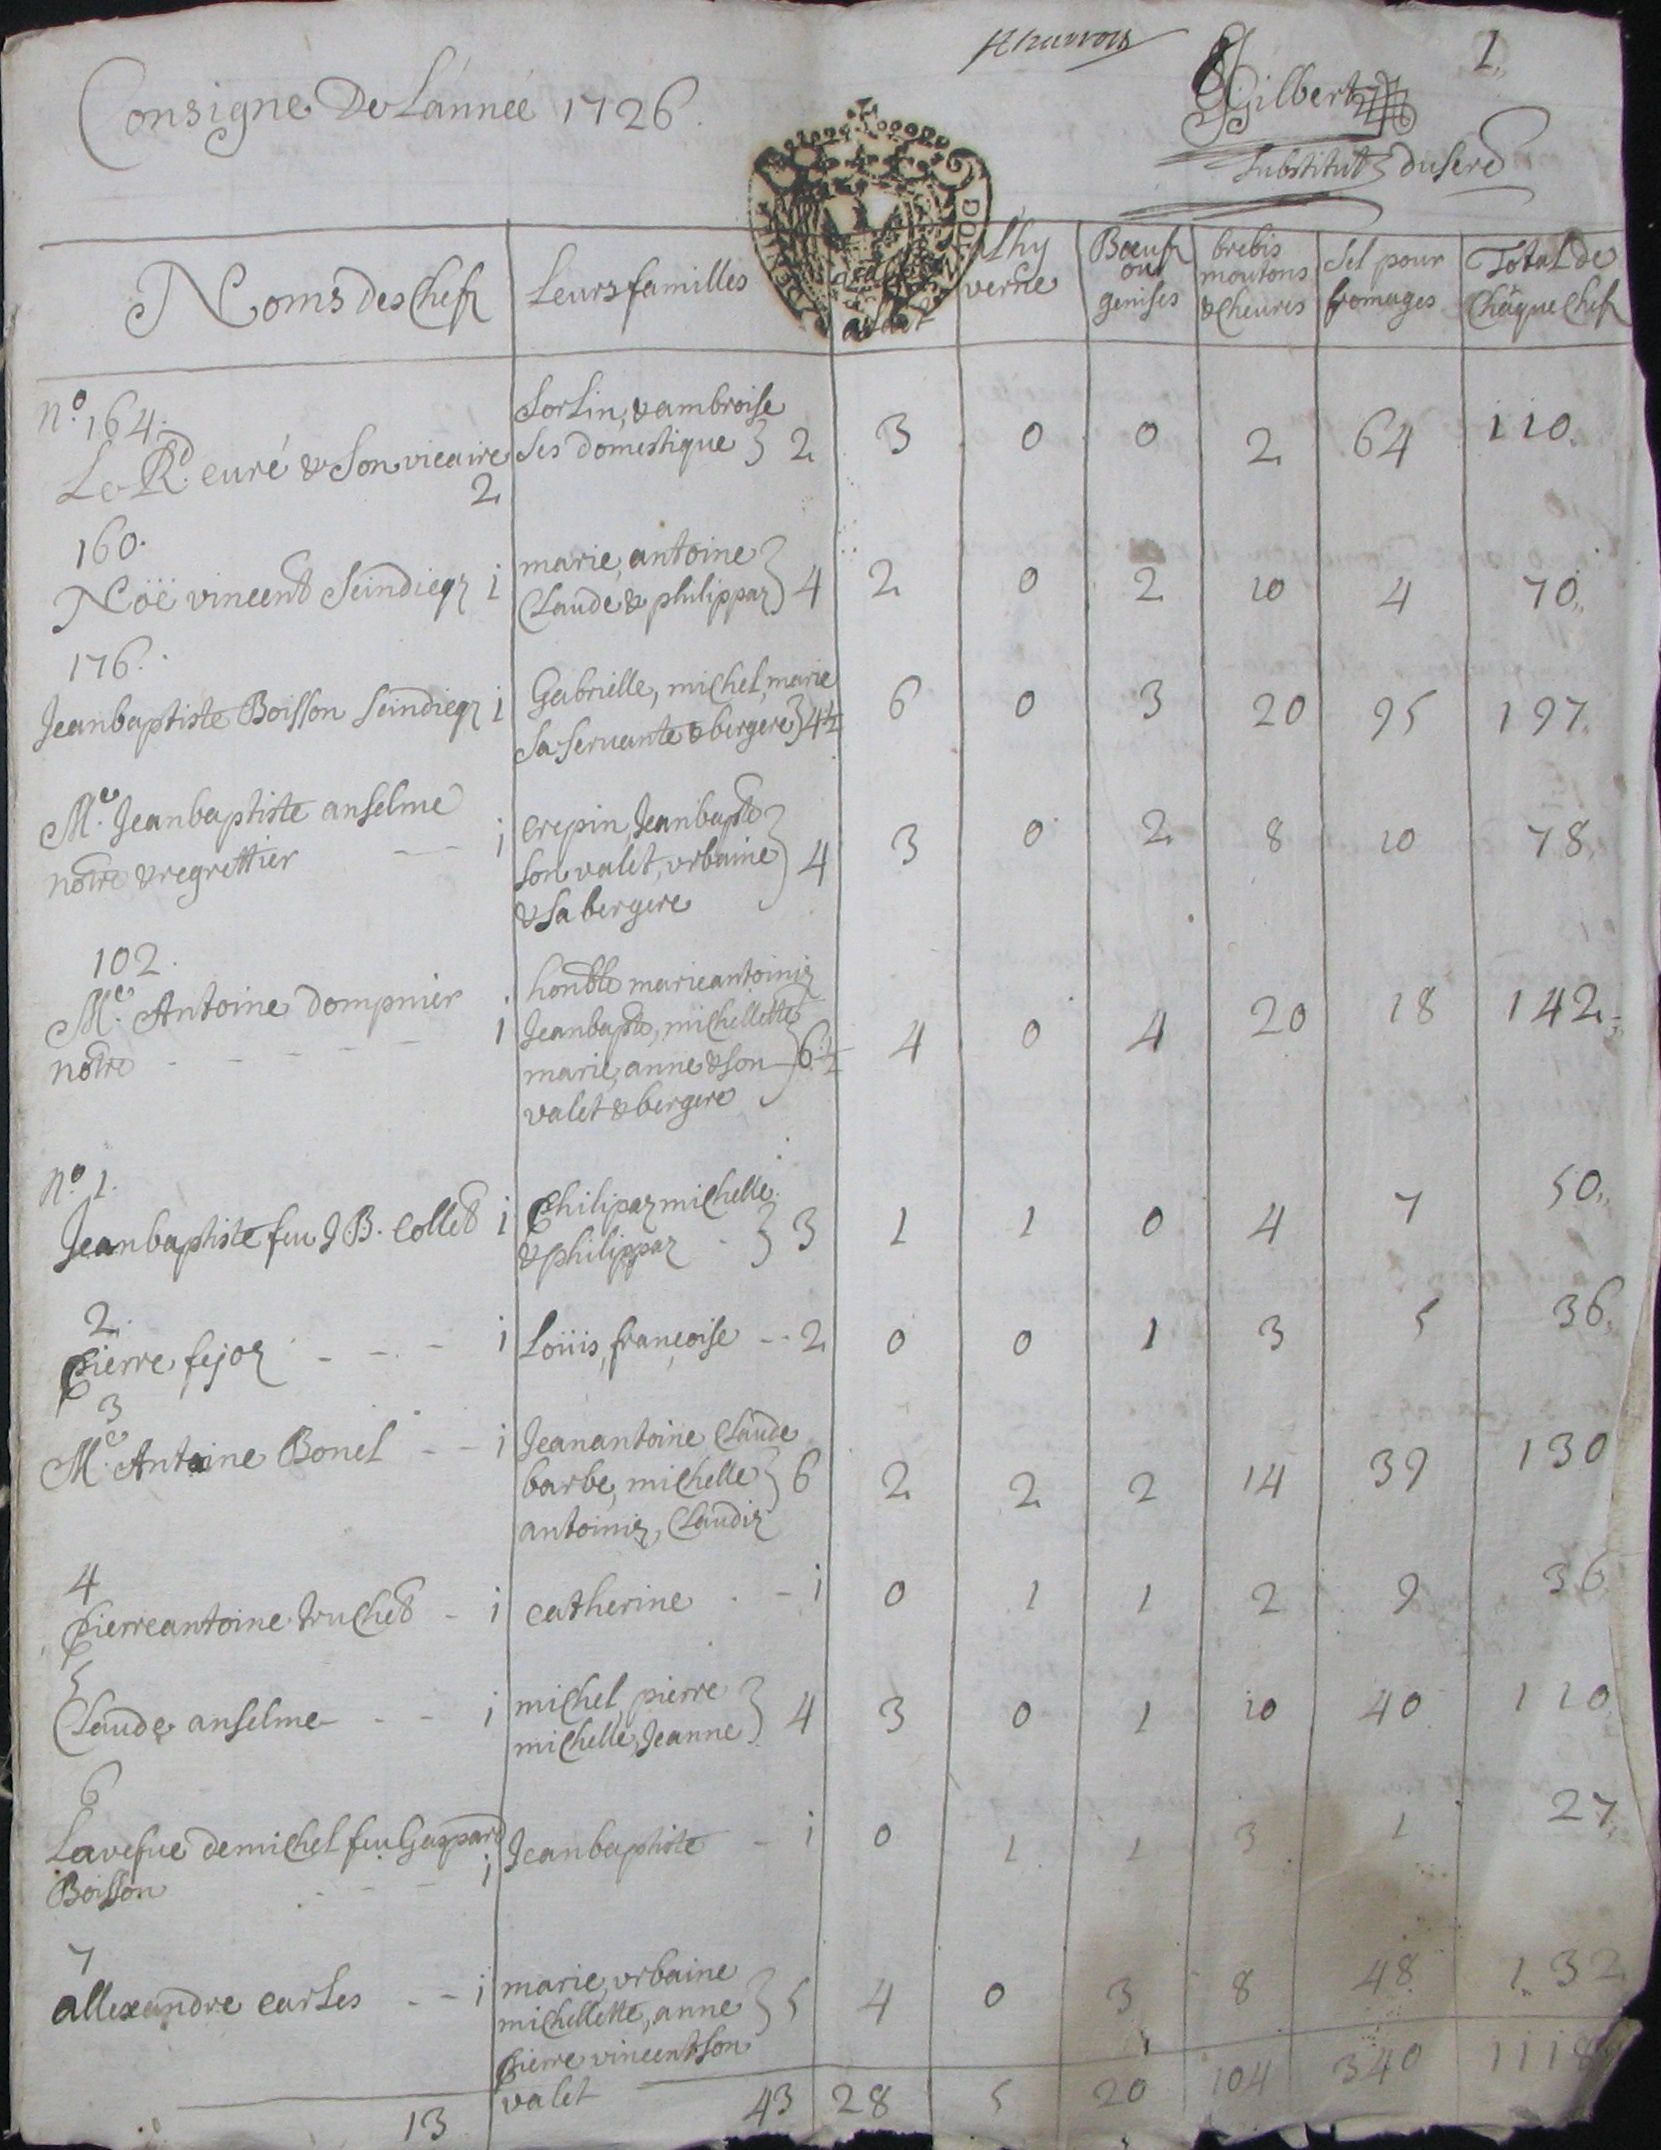 1.
Consigne De L'année 1726.
Gilbert
Substitut
Noms des Chefz
Leurs familles
Lhy
verne
Boeufz
ou
genises
brebis
moutons
& cheures
Sel pour
fromages
Total de
Châque Chefz
N.º 164.
Le Rd. curé & Son vicaire 2
Sorlin, & ambroise
Ses domestique } 2 3 0 0 2 64 110.
160.
Noë vincent Seindiqz i
marie, antoine
Claude & philippaz } 4 2 0 2 10 4 70,,
176.
Jeanbaptiste Boisson Seindiqz i
Gabrielle, michel, marie
Sa Seruante & bergere } 4½ 6 0 3 20 95 197.
Me. Jeanbaptiste anselme
notre & regrettier i
crepin, Jeanbapte
Son valet, vrbaine
& Sa bergere } 4 3 0 2 8 10 78,
102.
Me. Antoine dompnier
notre - - - - - 1
honble marieantoiniz
Jeanbapte, michellette
marie, anne & Son
valet & bergere } 6½ 4 0 4 20 18 142.
N.º 1.
Jeanbaptiste feu J B. collet i
Philipaz michelle
& philippaz } 3 1 1 0 4 7 50,,
2.
Pierre fejoz - - - i
Loüis, françoise -- 2 0 0 1 3 5 36,
3
Me. Antoine Bonel - - i
Jeanantoine Claude
barbe, michelle
antoiniz, Claudiz } 6 2 2 2 14 39 130
4
Pierreantoine truchet - i
catherine - i 0 1 1 2 9 36
5
Claude anselme - - i
michel, pierre
michelle, Jeanne } 4 3 0 1 10 40 110
6
Lavefue demichel feu Gaspard
Boisson i
Jeanbaptiste - i 0 1 1 3 1 27,
7
allexandre carles - - i
marie, vrbaine
michellette, anne
Pierre vincent son
valet } 5 4 0 3 8 48 132
13 43 28 5 20 104 340 1118